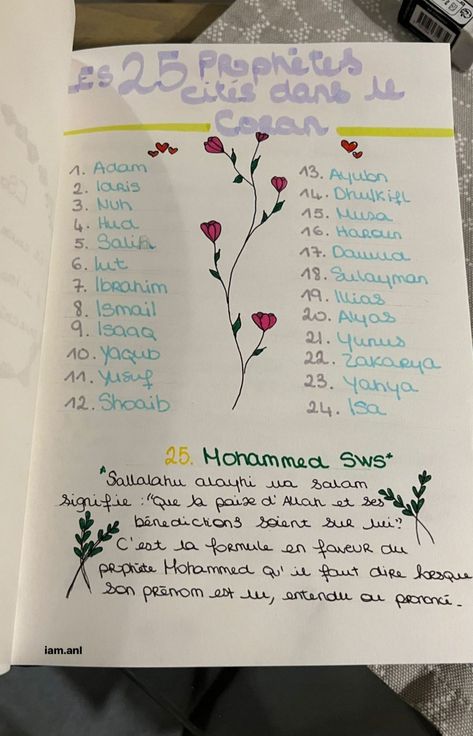 LES 25 Prophètes
cités dans le
Coran
1. Adam
2. Idris
3. Nuh
4. Hud
5. Salih
6. Lut
7. Ibrahim
8. Ismail
9. Isaaq
10. Yaqub
11. Yusuf
12. Shoaib
13. Ayubn
14. Dhulkifl
15. Musa
16. Haroun
17. Dawud
18. Sulayman
19. Ilias
20. Alyas
21. Yunus
22. Zakarya
23. Yahya
24. Isa
25. Mohammed SWS*
*Sallalahu alayhi wa salam
signifie : "Que la paix d'Allah et ses
bénédictions soient sur lui"
C'est la formule en faveur du
prophète Mohammed qu'il faut dire lorsque
son prénom est lu, entendu ou prononcé.
iam.anl